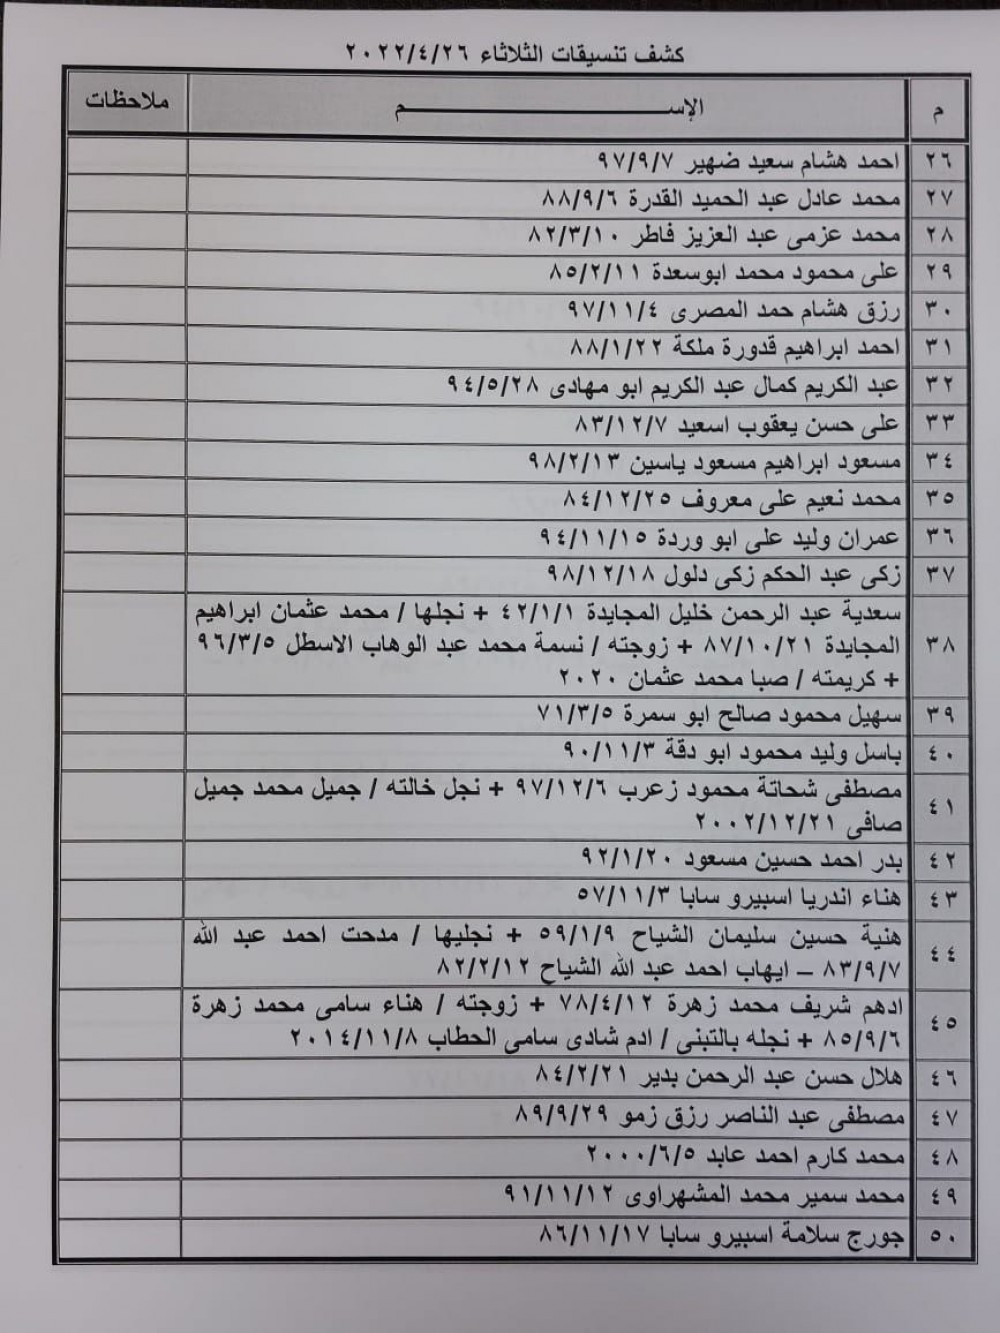 كشف تنسيقات الثلاثاء ٢٠٢٢/٤/٢٦
م الإســـم ملاحظات
٢٦ احمد هشام سعيد ضهير ٩٧/٩/٧
٢٧ محمد عادل عبد الحميد القدرة ٨٨/٩/٦
٢٨ محمد عزمى عبد العزيز فاطر ٨٢/٣/١٠
٢٩ على محمود محمد ابوسعدة ٨٥/٢/١١
٣٠ رزق هشام حمد المصرى ٩٧/١١/٤
٣١ احمد ابراهيم قدورة ملكة ٨٨/١/٢٢
٣٢ عبد الكريم كمال عبد الكريم ابو مهادى ٩٤/٥/٢٨
٣٣ على حسن يعقوب اسعيد ٨٣/١٢/٧
٣٤ مسعود ابراهيم مسعود ياسين ٩٨/٢/١٣
٣٥ محمد نعيم على معروف ٨٤/١٢/٢٥
٣٦ عمران وليد على ابو وردة ٩٤/١١/١٥
٣٧ زكى عبد الحكم زكى دلول ٩٨/١٢/١٨
٣٨ سعدية عبد الرحمن خليل المجايدة ٤٢/١/١ + نجلها / محمد عثمان ابراهيم
المجايدة ٨٧/١٠/٢١ + زوجته / نسمة محمد عبد الوهاب الاسطل ٩٦/٣/٥
+ كريمته / صبا محمد عثمان ٢٠٢٠
٣٩ سهيل محمود صالح ابو سمرة ٧١/٣/٥
٤٠ باسل وليد محمود ابو دقة ٩٠/١١/٣
٤١ مصطفى شحاتة محمود زعرب ٩٧/١٢/٦ + نجل خالته / جميل محمد جميل
صافى ٢٠٠٢/١٢/٢١
٤٢ بدر احمد حسين مسعود ٩٢/١/٢٠
٤٣ هناء اندريا اسبيرو سابا ٥٧/١١/٣
٤٤ هنية حسين سليمان الشياح ٥٩/١/٩ + نجليها / مدحت احمد عبد الله
٨٣/٩/٧ – ايهاب احمد عبد الله الشياح ٨٢/٢/١٢
٤٥ ادهم شريف محمد زهرة ٧٨/٤/١٢ + زوجته / هناء سامى محمد زهرة
٨٥/٩/٦ + نجله بالتبنى / ادم شادى سامى الحطاب ٢٠١٤/١١/٨
٤٦ هلال حسن عبد الرحمن بدير ٨٤/٢/٢١
٤٧ مصطفى عبد الناصر رزق زمو ٨٩/٩/٢٩
٤٨ محمد كارم احمد عابد ٢٠٠٠/٦/٥
٤٩ محمد سمير محمد المشهراوى ٩١/١١/١٢
٥٠ جورج سلامة اسبيرو سابا ٨٦/١١/١٧